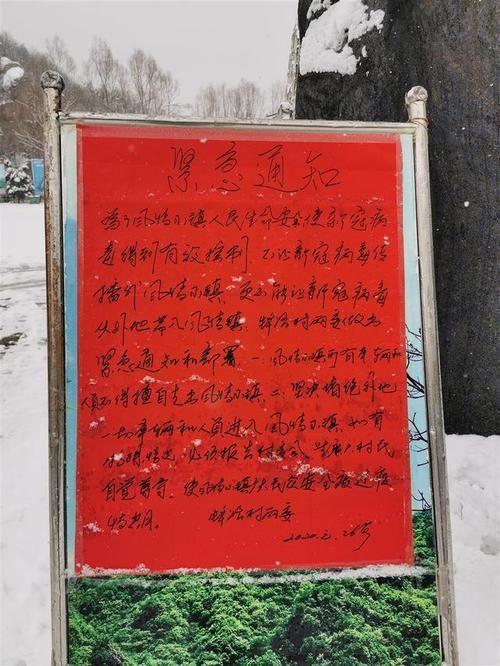 紧急通知
为了风情小镇人民生命安全使新冠病
毒得到有效控制 不让新冠病毒传
播到风情小镇 更不能让新冠病毒
从外地带入风情镇 村两委做出
紧急通知和部署 一 风情小镇所有车辆和
人员不得擅自走出风情小镇 二 坚决堵绝外地
一切车辆和人员进入风情小镇 如有
情况 必须报告村委 村民
自觉遵守 使风情小镇人民安全度过疫
情
村两委
2020.2.26号